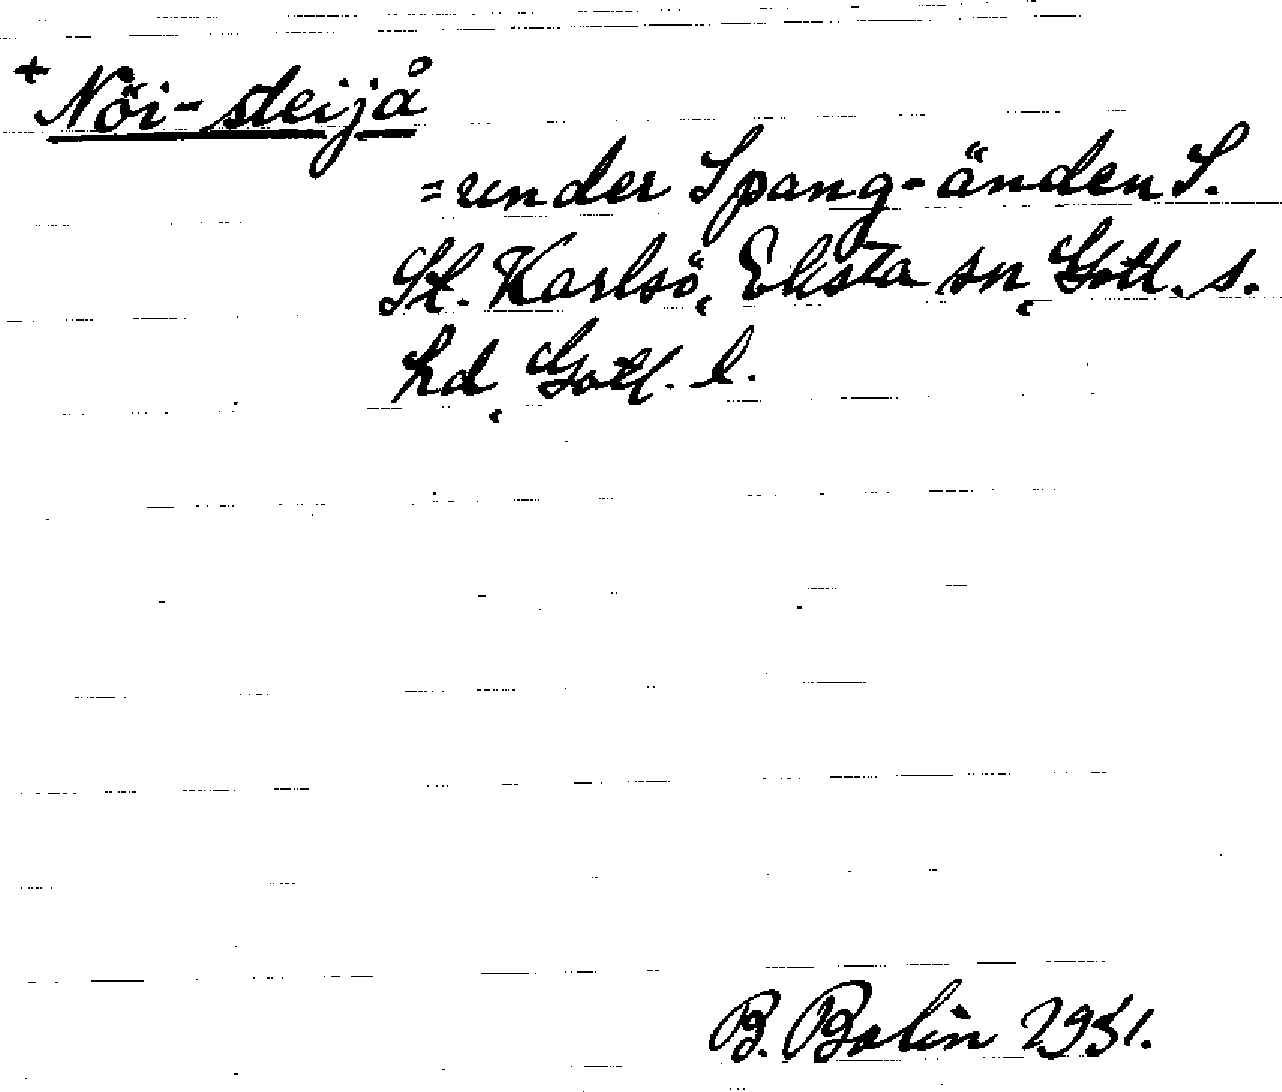 + Nöi-steijå
= under Spang-änden S.
St. Karlsö, Eksta sn, Gotl. s.
hd, Gotl. l.
B. Bolin 1951.